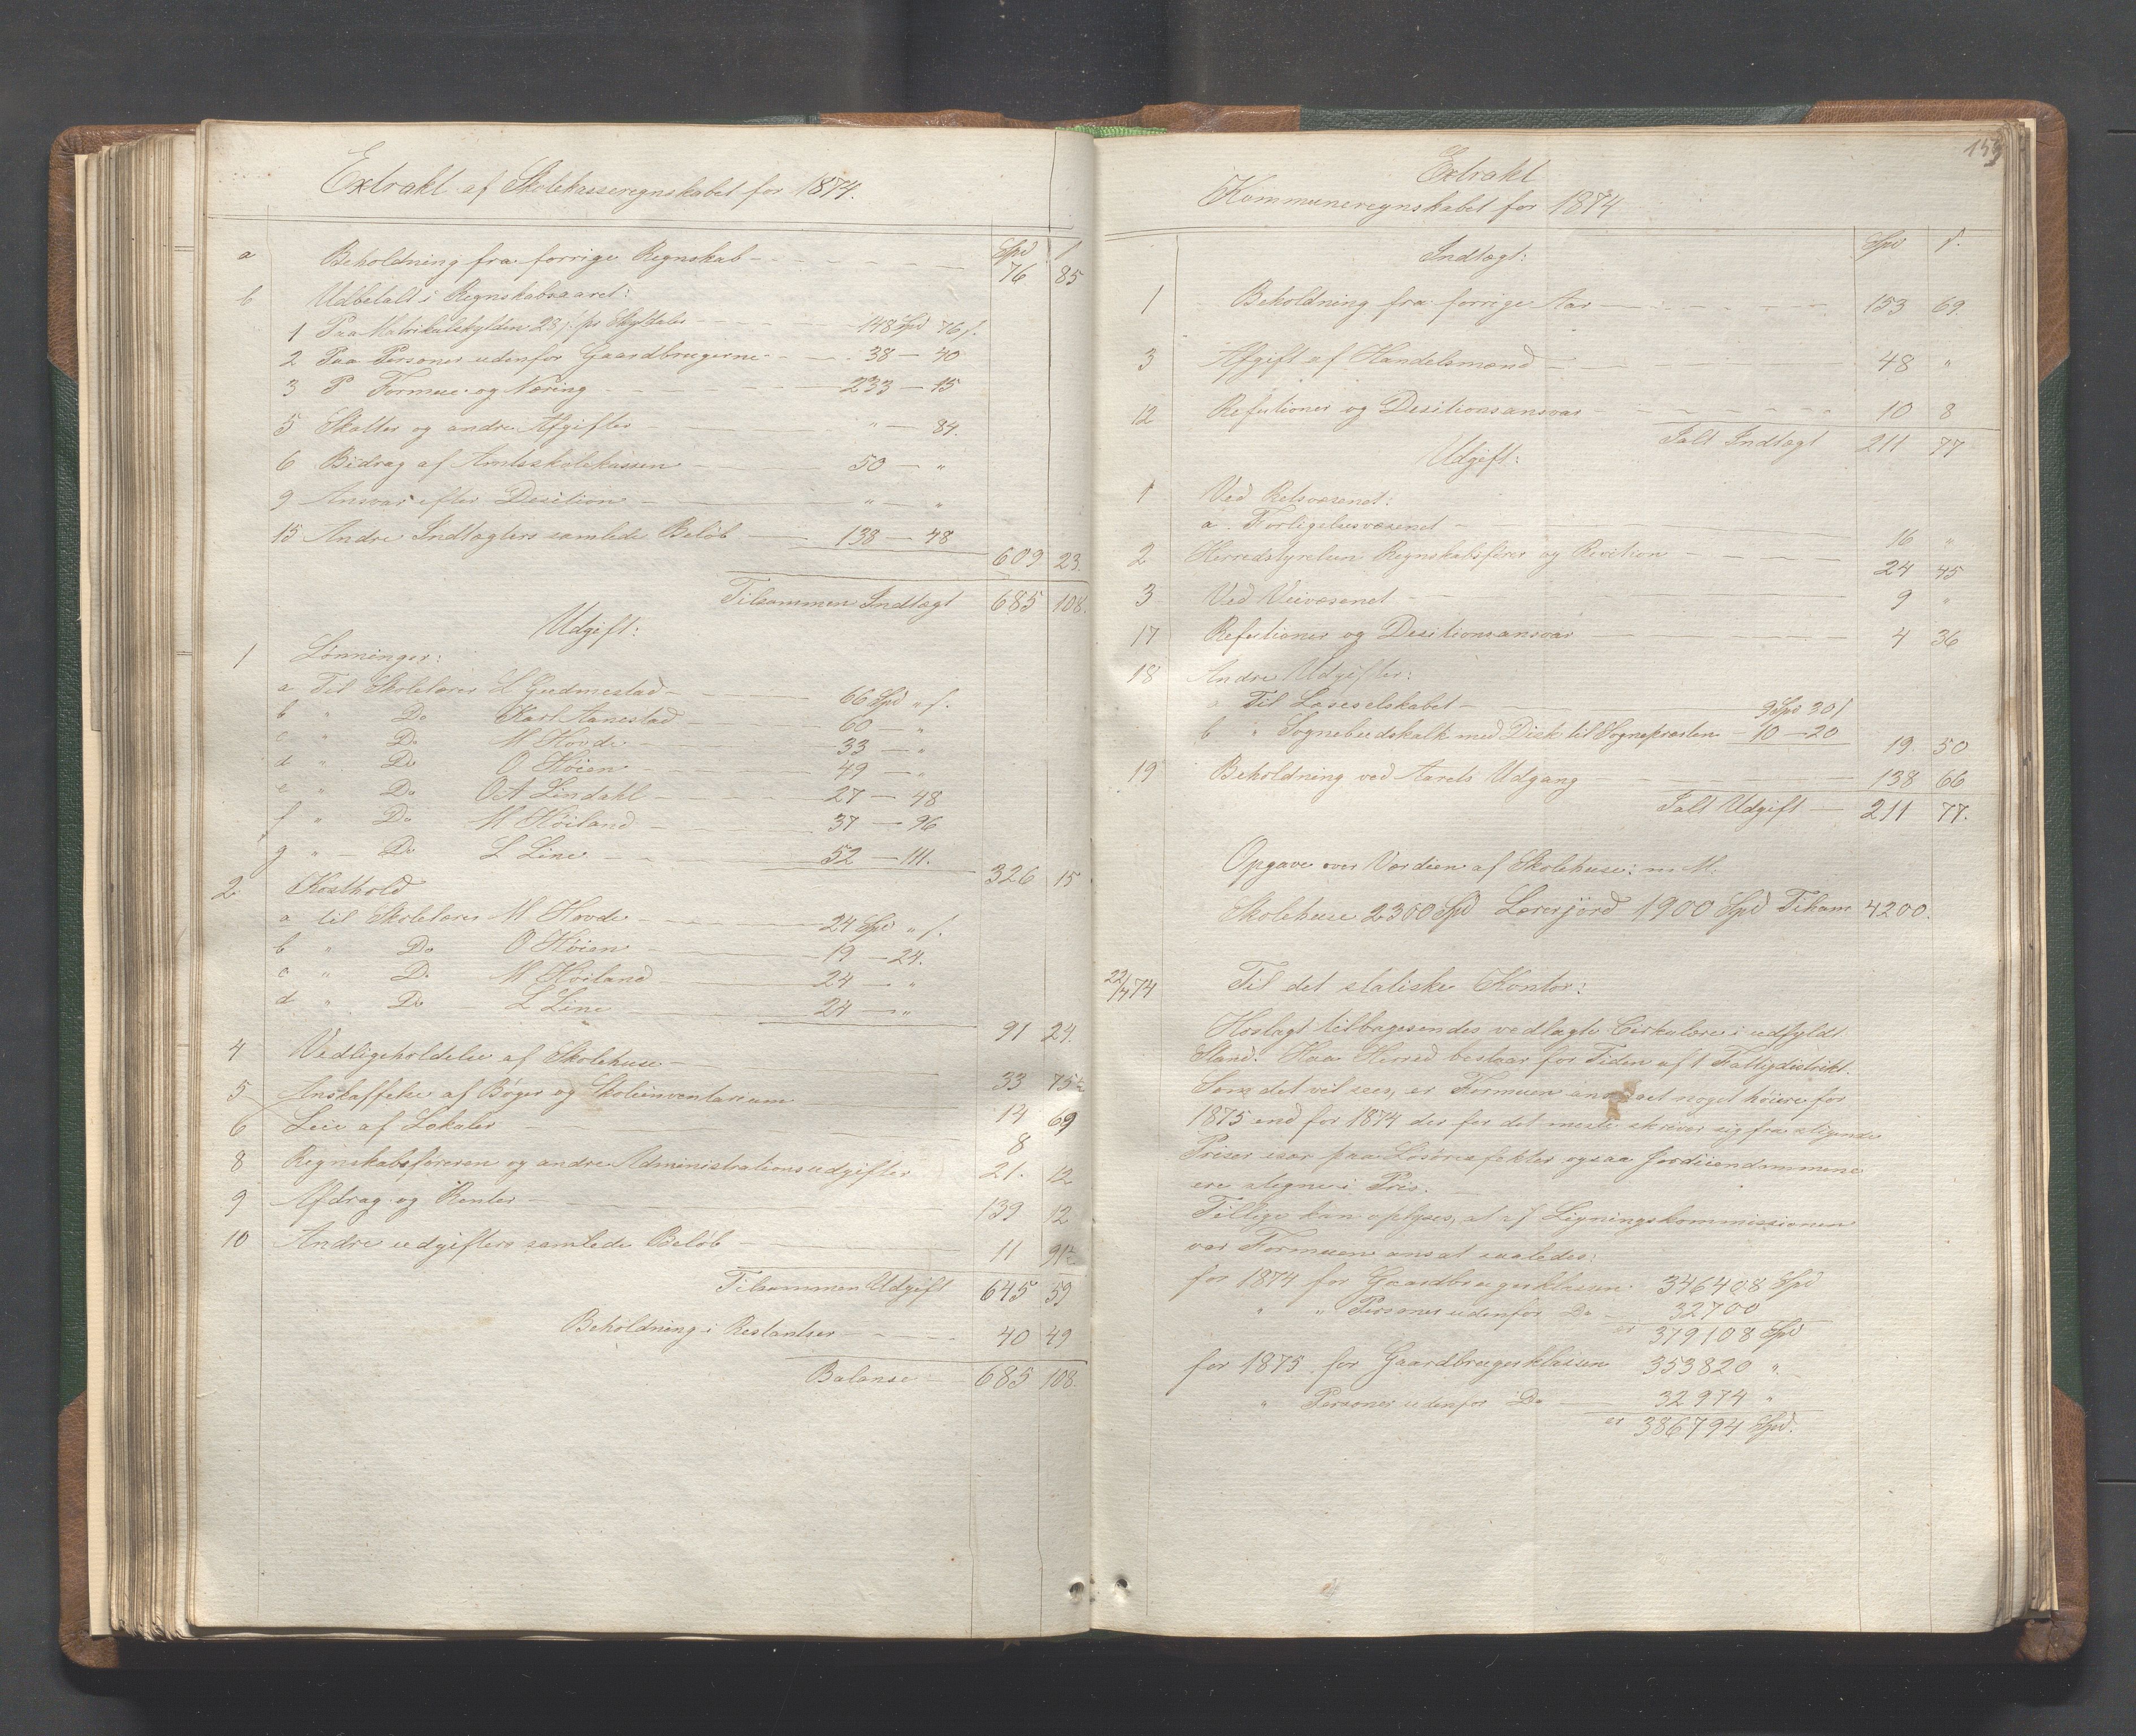 Extrakt af Skolekasseregnskabet for 1874.
Spd ſ
a Beholdning fra forrige Regnskab 76 85
b Udbetalt i Regnskabsaaret:
1 Paa Matrikulskylden 28 ſ. pr Skyldaler 148 Spd 76 ſ.
2 Paa Personer udenfor Gaardbrugerne 38 — 40
3 P Formue og Næring 233 — 15
5 Skatter og andre Afgifter " — 84.
6 Bidrag af Amtsskolekassen 50 — "
9 Ansvar efter Desition " — "
15 Andre Indtægters samlede Beløb 138 — 48
609 23.
Tilsammen Indtægt 685 108.
Udgift:
1 Lønninger:
a Til Skolelærer L Gudmestad 66 Spd " ſ.
b " Do Karl Aanestad 60 — "
c " Do M Hovde 33 — "
d " Do O Høien 49 — "
e " Do O A Lindahl 27 — 48
f " Do M Høiland 37 — 96
g " — Do L Line 52 — 111.
326 15
2. Kosthold
a til Skolelærer M Hovde 24 Spd " ſ.
b " Do O Høien 19 — 24.
c " Do M Høiland 24 — "
d " Do L Line 24 — "
91 24.
4 Vedligeholdelse af Skolehuse 33 75½
5 Anskaffelse af Bøger og Skoleinventarium 14 69
6 Leie af Lokaler 8
8 Regnskabsføreren og andre Administrationsudgifter 21. 12
9 Afdrag og Renter 139 12
10 Andre udgifters samlede Beløb 11 91½
Tilsammen Udgift 645 59
Beholdning i Restantser 40 49
Balanse 685 108
159
Extrakt
Kommuneregnskabet for 1874
Spd ſ.
Indtægt:
1 Beholdning fra forrige Aar 153 69.
3 Afgift af Handelsmænd 48 "
12 Refusioner og Desitionsansvar 10 8
Ialt Indtægt 211 77
Udgift:
1 Ved Retsvæsenet:
a. Forligelsesvæsenet 16 "
2 Herredstyrelsen Regnskabsfører og Revition 24 45
3 Ved Veivæsenet 9 "
17 Refusioner og Desitionsansvar 4 36
18 Andre Udgifter:
a Til Læseselskabet 9 Spd 30 ſ
b " Sognebudskalk med Disk til Sognepræsten 10 — 20 19. 50
19 Beholdning ved Aarets Udgang 138 66
Ialt Udgift 211 77.
Opgave over Værdien af Skolehuse: m. M.
Skolehuse 2300 Spd Lærerjord 1900 Spd Tilsam 4200.
22/7 74 Til det statiske Kontor:
Hoslagt tilbagesendes vedlagte Cirkulære i udfyldt
Stand. Haa Herred bestaar for Tiden af 1 Fattigdistrikt.
Som det vil sees, er Formuen ansaaet noget høiere for
1875 end for 1874 der for det meste skriver sig fra stigende
Priser især paa Løsøreefekter ogsaa Jordeiendommene
ere stegne i Pris.
Tillige kan oplyses, at af Ligningskommissionen
var Formuen ansat saaledes:
for 1874 for Gaardbrugerklassen 346408 Spd
" " Personer udenfor Do 32700
er 379108 Spd
for 1875 for Gaardbrugerklassen 353820 "
" Personer udenfor Do 32974 "
er 386794 Spd.